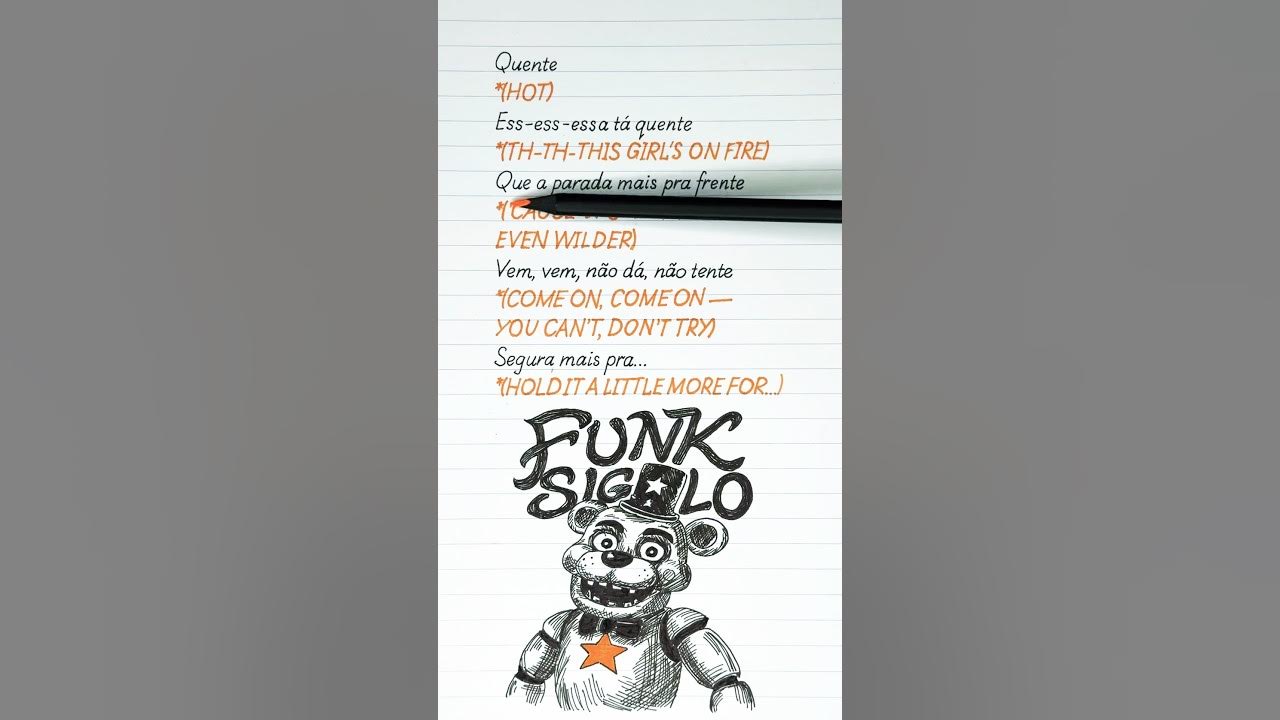 Quente
*(HOT)
Ess-ess-essa tá quente
*(TH-TH-THIS GIRL'S ON FIRE)
Que a parada mais pra frente
*('CAUSE
EVEN WILDER)
Vem, vem, não dá, não tente
*(COME ON, COME ON —
YOU CAN'T, DON'T TRY)
Segura mais pra...
*(HOLD IT A LITTLE MORE FOR...)
FUNK
SIGILO